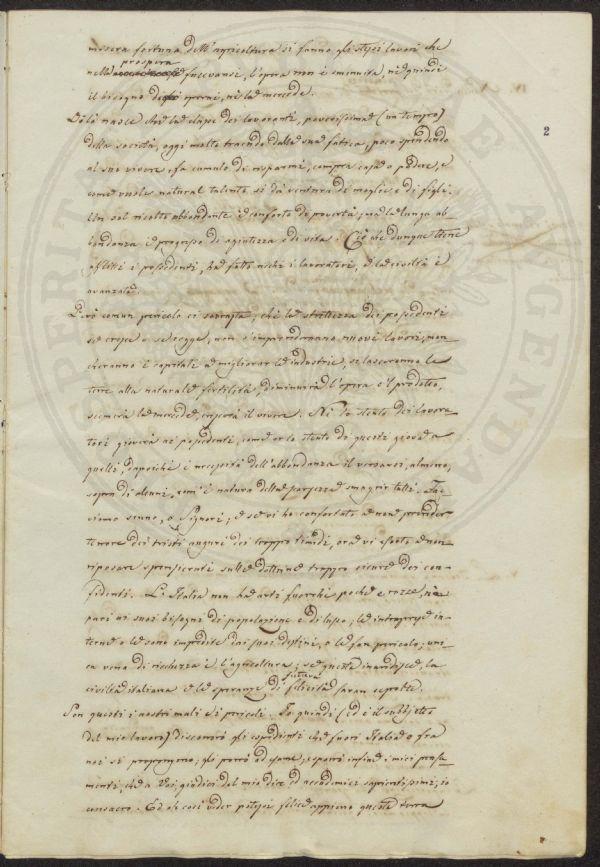 misera fortuna dell'agricoltura si fanno gli stessi lavori che
prospera
nella facevansi, l'opera non è sminuita, nè quindi
il bisogno degli operai, nè la mercede.
2
Di là nasce che la classe dei lavoranti, poverissima (un tempo)
della società, oggi molto traendo dalla sua fatica, poco spendendo
al suo vivere, fa cumulo di risparmi, compra casa o podere, e
come vuole natural talento si dà ventura di moglie e di figli.
Un sol ricolto abbondante è conforto di povertà; ma la lunga ab-
bondanza è progresso di agiatezza e di vita. Ciò che dunque tiene
afflitti i possidenti, ha fatto ricchi i lavoratori, e la civiltà è
avanzata.
Però comun pericolo ci sovrasta, chè la strettezza dei possidenti
se cresce o se regge, non s'imprenderanno nuovi lavori, man-
cheranno i capitali a migliorar le industrie, si lasceranno le
terre alla naturale fertilità, diminuirà l'opera e 'l prodotto,
scemerà la mercede, il vivere. Nè lo stento dei lavora-
tori gioverà ai possidenti, come or lo stento di questi giova a
quelli; dapoichè è necessità dell'abbondanza il versarsi, almeno,
sopra di alcuni, com'è natura della scarsezza smagrir tutti. Fac-
ciamo senno, o Signori; e se vi ho confortato a non prender
terrore dei tristi auguri dei troppo timidi, ora vi esorto a non
riposare spensierati sulle dottrine troppo sicure dei con-
fidenti. L'Italia non ha arti fuorchè poche e rozze, im-
pari ai suoi bisogni di popolazione e di lusso; le intraprese in-
terne o le sono impedite dai suoi destini, o le fan pericolo; uni-
ca vena di ricchezza è l'agricoltura; se questa inaridisce, la
futura
civiltà italiana e le speranze di felicità saran
Son questi i nostri mali e i pericoli. Io quindi (ed è il subbjetto
del mio lavoro) discorrerò gli espedienti che fuori Italia o fra
noi si propongono; gli porrò ad esame; esporrò infine i miei pensa-
menti, che a Voi, giudici del mio dire ed accademici sapientissimi, io
consacro. Ed oh così veder potessi felice appieno questa terra